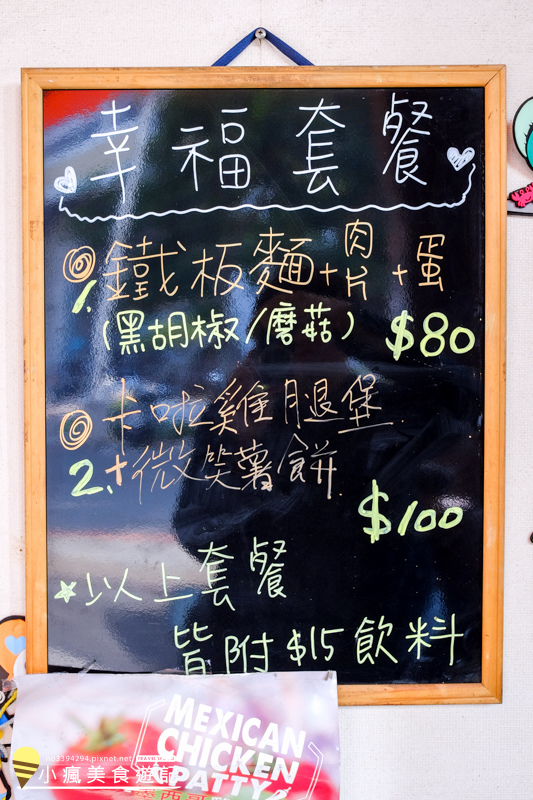 幸福套餐
1. 鐵板麵+肉片+蛋
(黑胡椒/磨菇) $80
2. 卡啦雞腿堡
+微笑薯餅
$100
以上套餐
皆附$15飲料
MEXICAN
CHICKEN
PATTY
ne3394294.pixnet.net
小瘋美食遊記